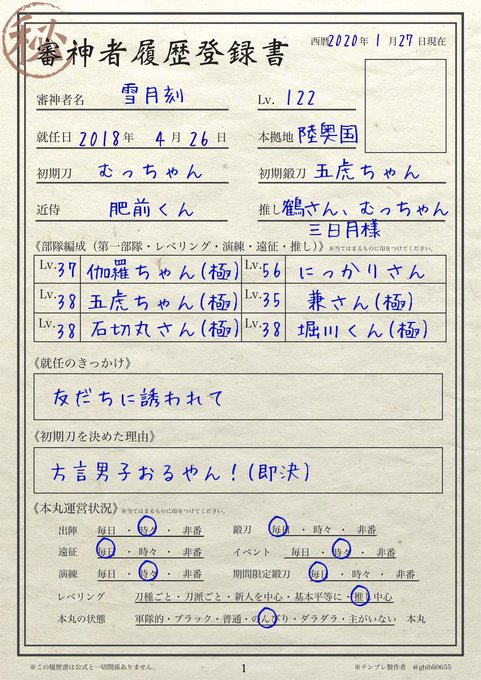 秘
審神者履歴登録書
西暦2020年 1月27日現在
審神者名 雪月刻 Lv. 122
就任日 2018年 4月26日 本拠地 陸奥国
初期刀 むっちゃん 初期鍛刀 五虎ちゃん
近侍 肥前くん 推し 鶴さん、むっちゃん
三日月様
《部隊編成(第一部隊・レベリング・演練・遠征・推し)》※当てはまるものに印をつけてください。
Lv.37 伽羅ちゃん(極) Lv.56 にっかりさん
Lv.38 五虎ちゃん(極) Lv.35 兼さん(極)
Lv.38 石切丸さん(極) Lv.38 堀川くん(極)
《就任のきっかけ》
友だちに誘われて
《初期刀を決めた理由》
方言男子おるやん!(即決)
《本丸運営状況》※当てはまるものに印をつけてください。
出陣 毎日・時々・非番 鍛刀 毎日・時々・非番
遠征 毎日・時々・非番 イベント 毎日・時々・非番
演練 毎日・時々・非番 期間限定鍛刀 毎日・時々・非番
レベリング 刀種ごと・刀派ごと・新人を中心・基本平等に・推し中心
本丸の状態 軍隊的・ブラック・普通・のんびり・ダラダラ・主がいない 本丸
※この履歴書は公式と一切関係ありません。 1 ※テンプレ製作者 @ghibli0655